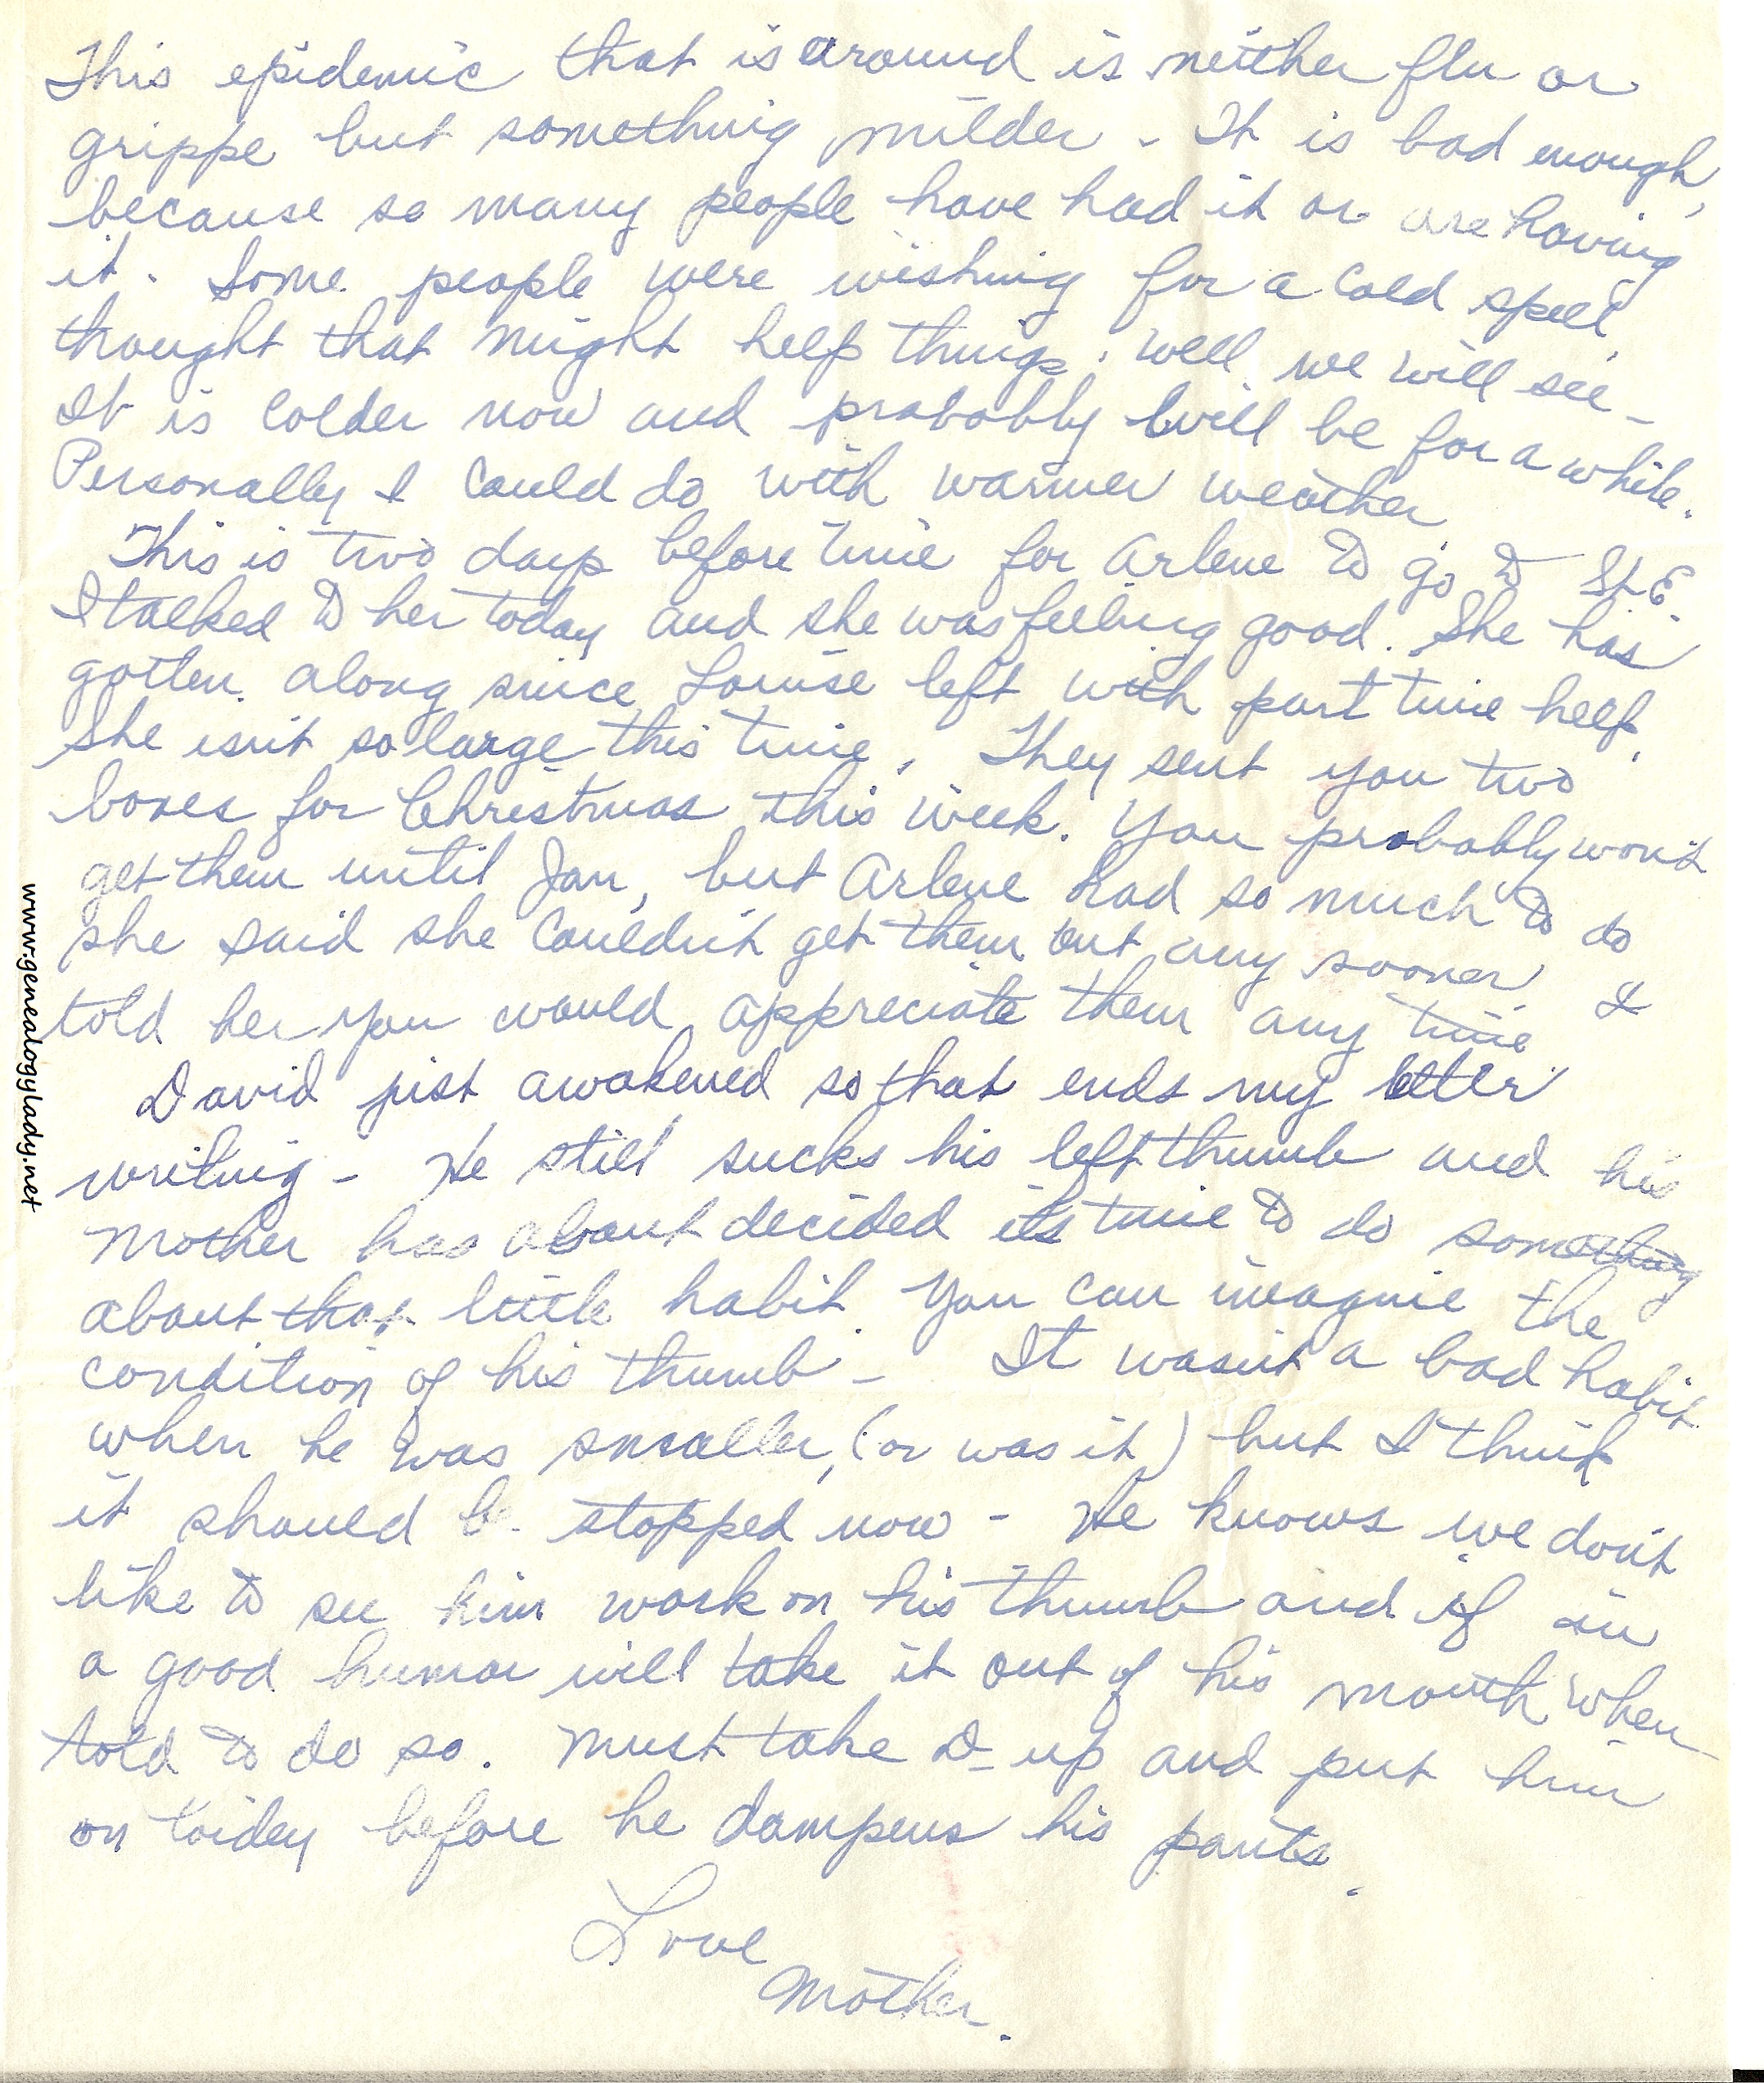 This epidemic that is around is neither flu or
grippe but something milder - It is bad enough,
because so many people have had it or are having
it. Some people were wishing for a cold spell,
thought that might help things. Well, we will see -
It is colder now and probably will be for a while.
Personally I could do with warmer weather
This is two days before time for Arlene to go to St. E.
I talked to her today and she was feeling good. She has
gotten along since Louise left with part time help.
She isn't so large this time. They sent you two
boxes for Christmas this week. You probably won't
get them until Jan, but Arlene had so much to do
she said she couldn't get them out any sooner. I
told her you would appreciate them any time
David just awakened so that ends my letter
writing - He still sucks his left thumb and his
Mother has about decided its time to do something
about that little habit. You can imagine the
condition of his thumb - It wasn't a bad habit
when he was smaller, (or was it) but I think
it should be stopped now - He knows we don't
like to see him work on his thumb and if in
a good humor will take it out of his mouth when
told to do so. Must take D- up and put him
on toidey before he dampens his pants.
Love
Mother.
www.genealogylady.net